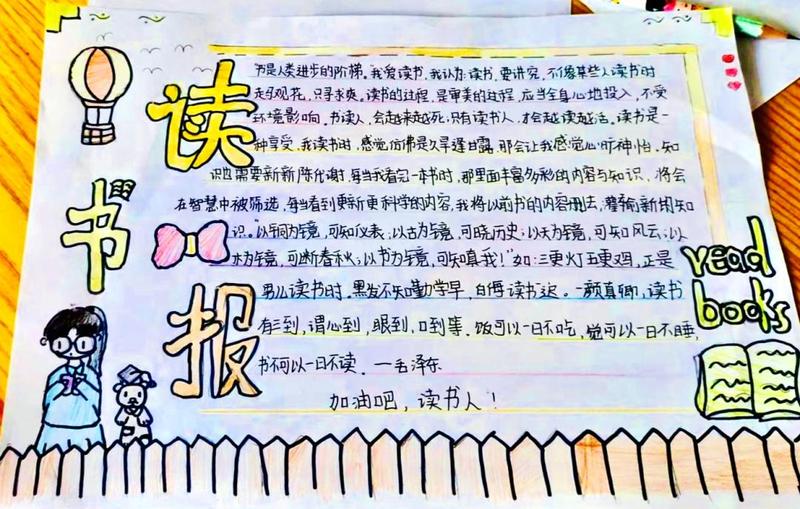 读
书
报
书是人类进步的阶梯。"我爱读书，我认为：读书，要讲究，不像某些人读书时
走马观花，只寻求爽。读书的过程，是审美的过程，应当全身心地投入，不受
环境影响。书读人，会越来越死；只有读书人，才会越读越活。读书是一
种享受，我读书时，感觉仿佛是久旱逢甘露，那会让我感觉心旷神怡。知
识也需要新新陈代谢，每当我看完一本书时，那里面丰富多彩的内容与知识，将会
在智慧中被筛选，每当看到更新更科学的内容，我将以前书的内容删去，灌新的知
识。"以铜为镜，可知仪表；以古为镜，可晓历史；以天为镜，可知风云；以
水为镜，可断春秋；以书为镜，可知嗔我！"如：三更灯五更鸡，正是
男儿读书时。黑发不知勤学早，白首读书迟。一颜真卿，读书
有三到，谓心到，眼到，口到等。饭可以一日不吃，觉可以一日不睡，
书不可以一日不读。一毛泽东
加油吧，读书人！
read
books